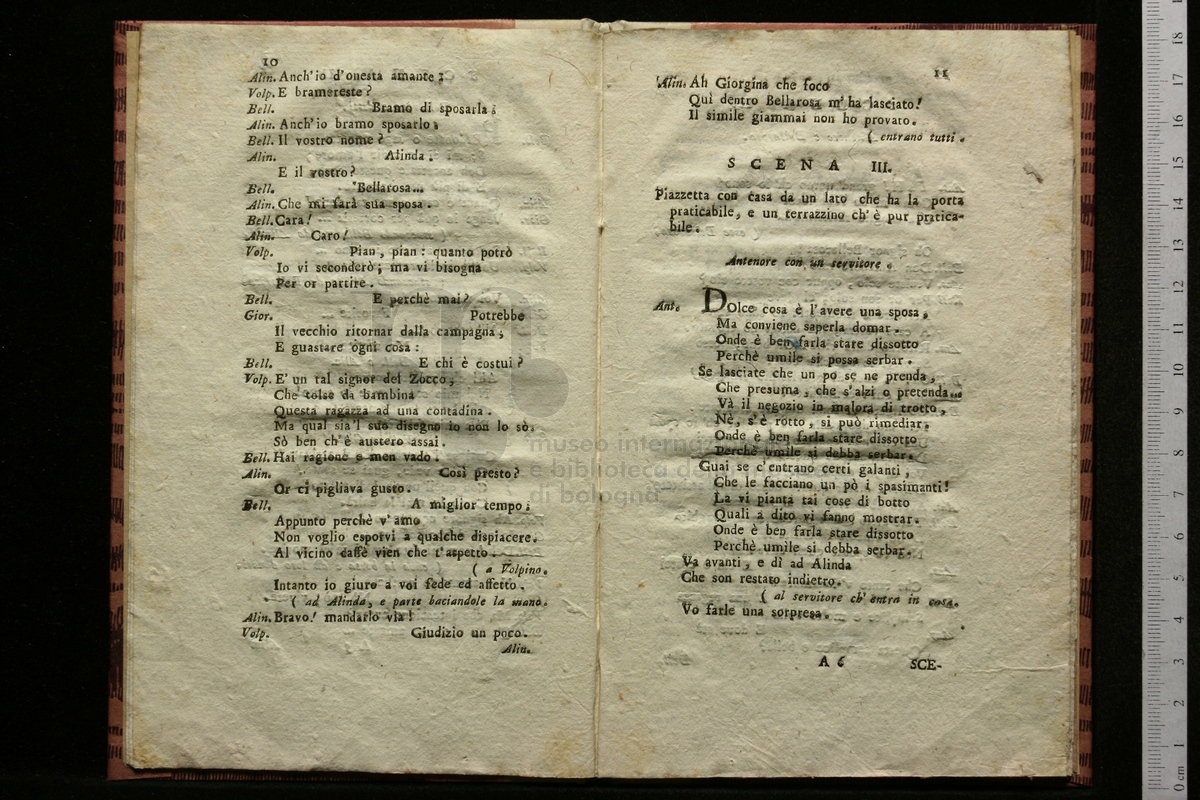 10
Alin. Anch'io d'onesta amante:
Volp. E bramereste?
Bell. Bramo di sposarla;
Alin. Anch'io bramo sposarlo;
Bell. Il vostro nome?
Alin. Alinda.
E il vostro?
Bell. Bellarosa...
Alin. Che mi farà sua sposa.
Bell. Cara!
Alin. Caro!
Volp. Pian, pian: quanto potrò
Io vi seconderò; ma vi bisogna
Per or partire.
Bell. E perchè mai?
Gior. Potrebbe
Il vecchio ritornar dalla campagna;
E guastare ogni cosa:
Bell. E chi è costui?
Volp. E' un tal signor del Zocco;
Che tolse da bambina
Questa ragazza ad una contadina.
Ma qual sia'l suo disegno io non lo sò,
Sò ben ch'è austero assai.
Bell. Hai ragione e men vado.
Alin. Così presto?
Or ci pigliava gusto.
Bell. A miglior tempo;
Appunto perchè v'amo
Non voglio esporvi a qualche dispiacere.
Al vicino caffè vien che t'aspetto.
( a Volpino.
Intanto io giuro a voi fede ed affetto.
( ad Alinda, e parte baciandole la mano.
Alin. Bravo! mandarlo via!
Volp. Giudizio un poco.
Alin.
11
Alin. Ah Giorgina che foco
Quì dentro Bellarosa m'ha lasciato!
Il simile giammai non ho provato.
( entrano tutti.
SCENA III.
Piazzetta con casa da un lato che ha la porta
praticabile, e un terrazzino ch'è pur pratica-
bile.
Antenore con un servitore.
Ant. DOlce cosa è l'avere una sposa,
Ma conviene saperla domar.
Onde è ben farla stare dissotto
Perchè umile si possa serbar.
Se lasciate che un po se ne prenda,
Che presuma, che s'alzi o pretenda...
Và il negozio in malora di trotto,
Nè, s'è rotto, si può rimediar.
Onde è ben farla stare dissotto
Perchè umile si debba serbar.
Guai se c'entrano certi galanti,
Che le facciano un pò i spasimanti!
La vi pianta tai cose di botto
Quali a dito vi fanno mostrar.
Onde è ben farla stare dissotto
Perchè umile si debba serbar.
Va avanti, e dì ad Alinda
Che son restato indietro.
( al servitore ch'entra in casa.
Vo farle una sorpresa.
A 6 SCE-
museo internaz
e biblioteca d
di bologna